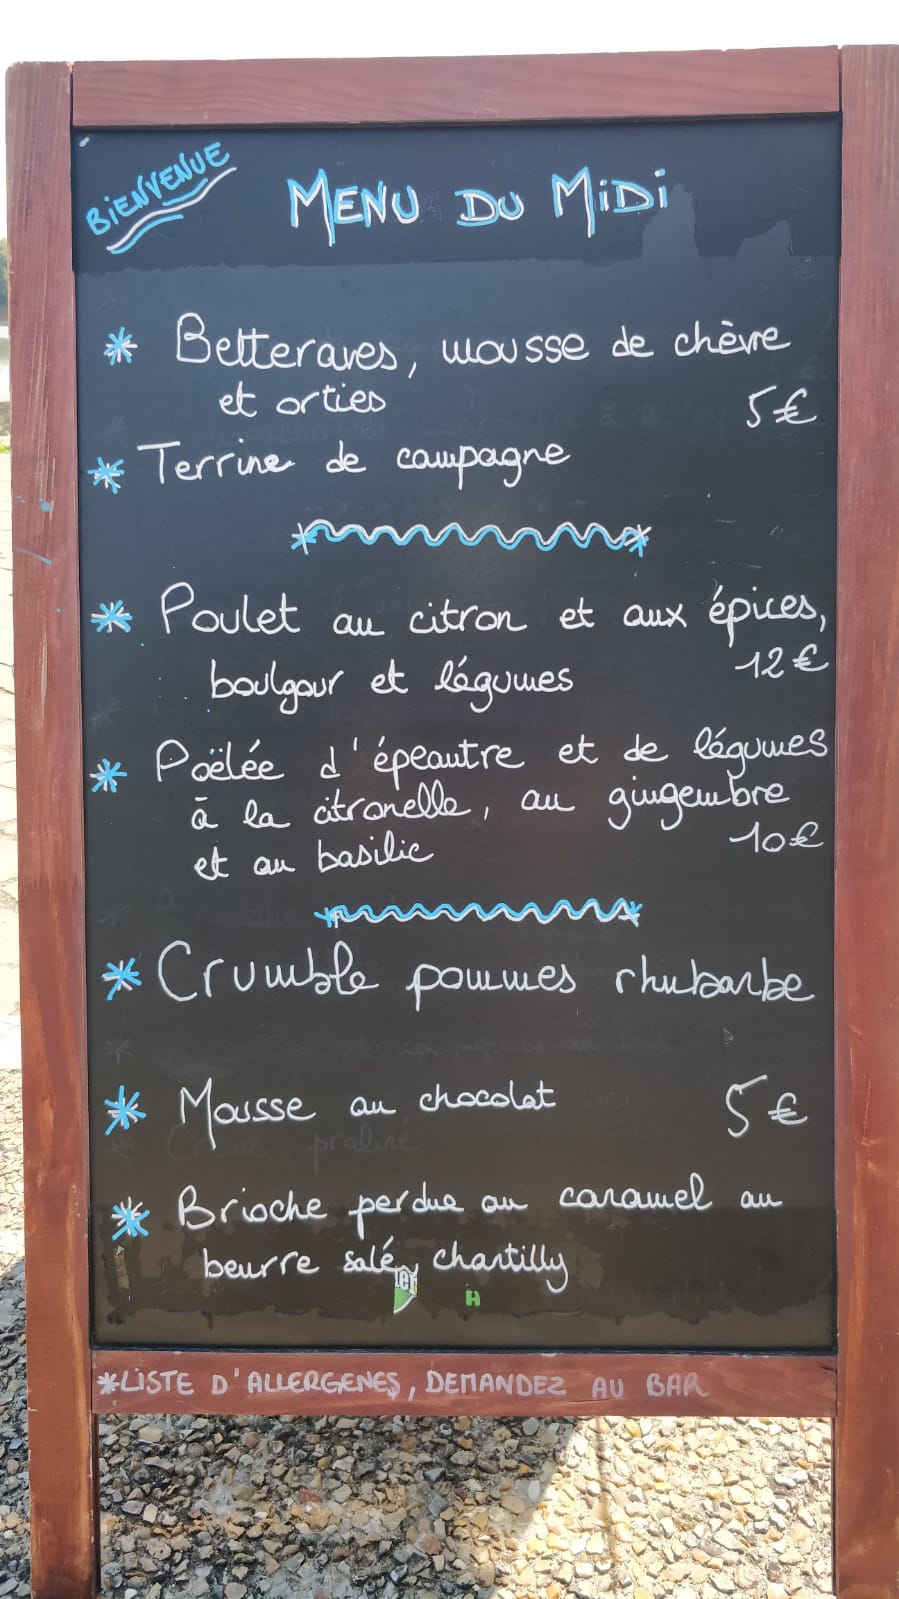 BiENVENUE
MENU DU MiDi
* Betteraves, mousse de chèvre
et orties 5€
* Terrine de campagne
* Poulet au citron et aux épices,
12€
boulgour et légumes
* Poëlée d'épeautre et de légumes
à la citronelle, au gingembre
10€
et au basilic
* Crumble pommes rhubarbe
* Mousse au chocolat 5€
praliné
* Brioche perdue au caramel au
beurre salé, chantilly
*LISTE D'ALLERGENES, DEMANDEZ AU BAR